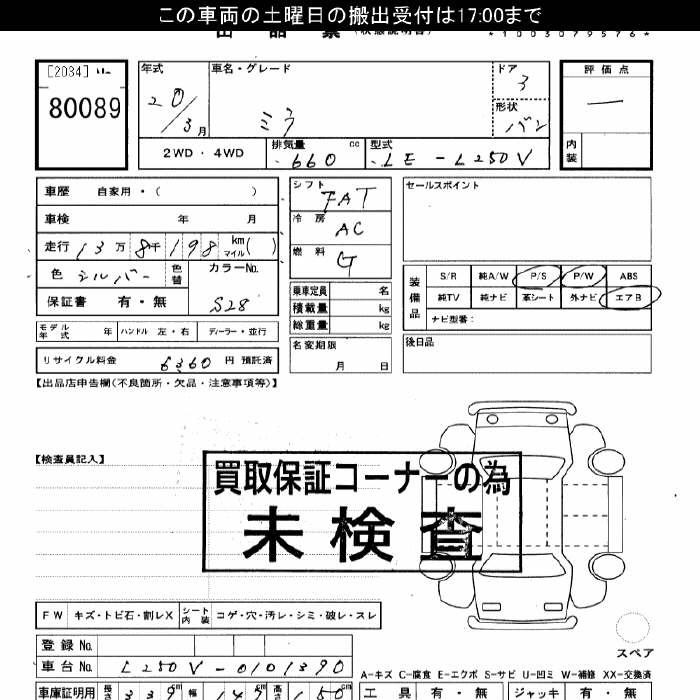 この車両の土曜日の搬出受付は17:00まで
出品票 (状態説明書) *1003079576*
[2034]
80089
年式 20/3月
車名・グレード ミラ
ドア 3
形状 バン
評価点 ー
内装
2WD・4WD
排気量 660 cc
型式 LE-L250V
車歴 自家用・( )
車検 年 月
走行 13万8千198 km マイル( )
色 シルバー 色替 カラーNo. S28
保証書 有・無
モデル年式 年 ハンドル 左・右 ディーラー・並行
リサイクル料金 6360 円 預託済
シフト FAT
冷房 AC
燃料 G
乗車定員 名
積載量 kg
総重量 kg
名変期限 月 日
セールスポイント
装備品
S/R 純A/W P/S P/W ABS
純TV 純ナビ 革シート 外ナビ エアB
ナビ型番:
後日品
【出品店申告欄(不良箇所・欠品・注意事項等)】
【検査員記入】
買取保証コーナーの為
未検査
FW キズ・トビ石・割レX シート内装 コゲ・穴・汚レ・シミ・破レ・スレ
スペア
登録No.
車台No. L250V-0101390
A-キズ C-腐食 E-エクボ S-サビ U-凹ミ W-補修 XX-交換済
車庫証明用 長さ 339cm 幅 147cm 高さ 150cm
工具 有・無 ジャッキ 有・無